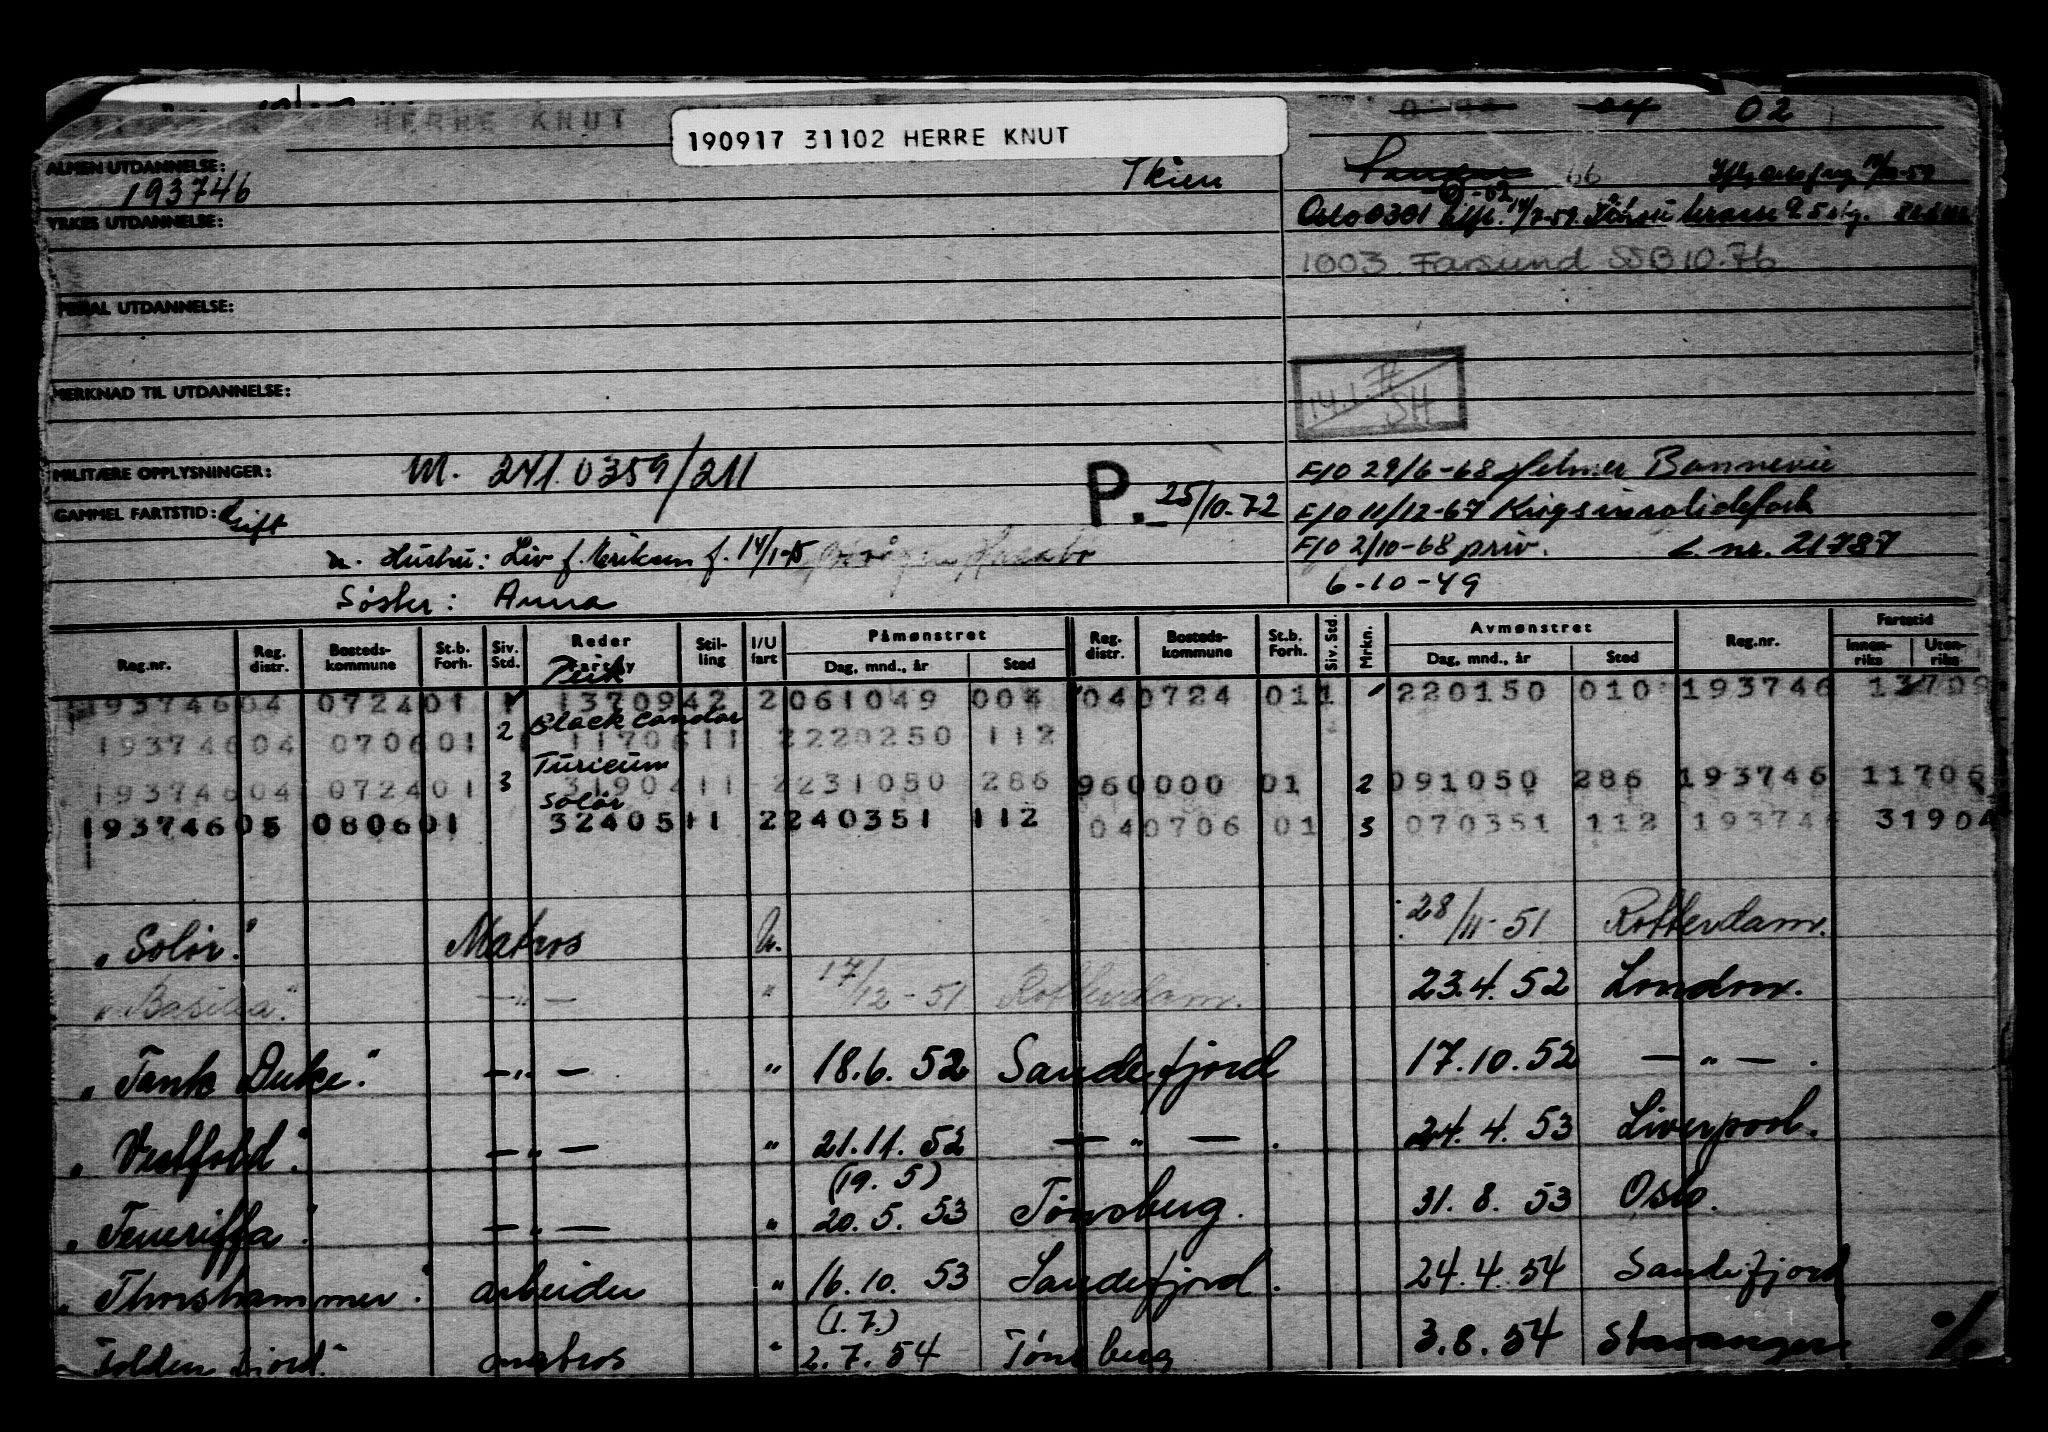 HERRE KNUT
190917 31102 HERRE KNUT
02
ALMEN UTDANNELSE:
193746
Skien
66
YRKES UTDANNELSE:
Oslo 0301
1003 Farsund SSB 10.76
SPESIAL UTDANNELSE:
MERKNAD TIL UTDANNELSE:
14.1.
SH
MILITÆRE OPPLYSNINGER:
M. 241.0359/211
P. 25/10-72
F/O 29/6-68 Helmer Bonnevie
GAMMEL FARTSTID:
Gift
F/O 11/12-67 Krigsinvalideforb
m. Hustru: Liv f. Eriksen f. 14/1-15
F/O 2/10-68 priv. L. nr. 21787
Søster: Anna
6-10-49
Reg.nr. Reg. distr. Bosteds-kommune St.b. Forh. Siv. Std. Reder Fartøy Stil-ling I/U fart Påmønstret Dag, mnd., år Sted Reg. distr. Bosteds-kommune St.b. Forh. Siv. Std. Mrkn. Avmønstret Dag, mnd., år Sted Reg.nr. Fartstid Innen-riks Uten-riks
193746 04 0724 01 1370942 2 061049 004 04 0724 01 1 220150 010 193746 13709
2 Black Condor
193746 04 0706 01 1170611 2 220250 112
Turicum
193746 04 0724 01 3 3190411 2 231050 286 96 0000 01 2 091050 286 193746 11706
Solør
193746 05 0806 01 3240511 2 240351 112 04 0706 01 3 070351 112 193746 31904
"Solør." Matros U. 28/11-51 Rotterdam.
"Basilea." —"— " 17/12-51 Rotterdam. 23.4.52 London.
"Tank Duke." —"— " 18.6.52 Sandefjord 17.10.52 —"—.
"Vestfold." —"— " 21.11.52 —"—. 24.4.53 Liverpool.
(19.5)
"Teneriffa." —"— " 20.5.53 Tønsberg. 31.8.53 Oslo.
"Thorshammer." arbeider " 16.10.53 Sandefjord. 24.4.54 Sandefjord
(1.7.)
"Folden Fjord." matros " 2.7.54 Tønsberg 3.8.54 Stavanger
%